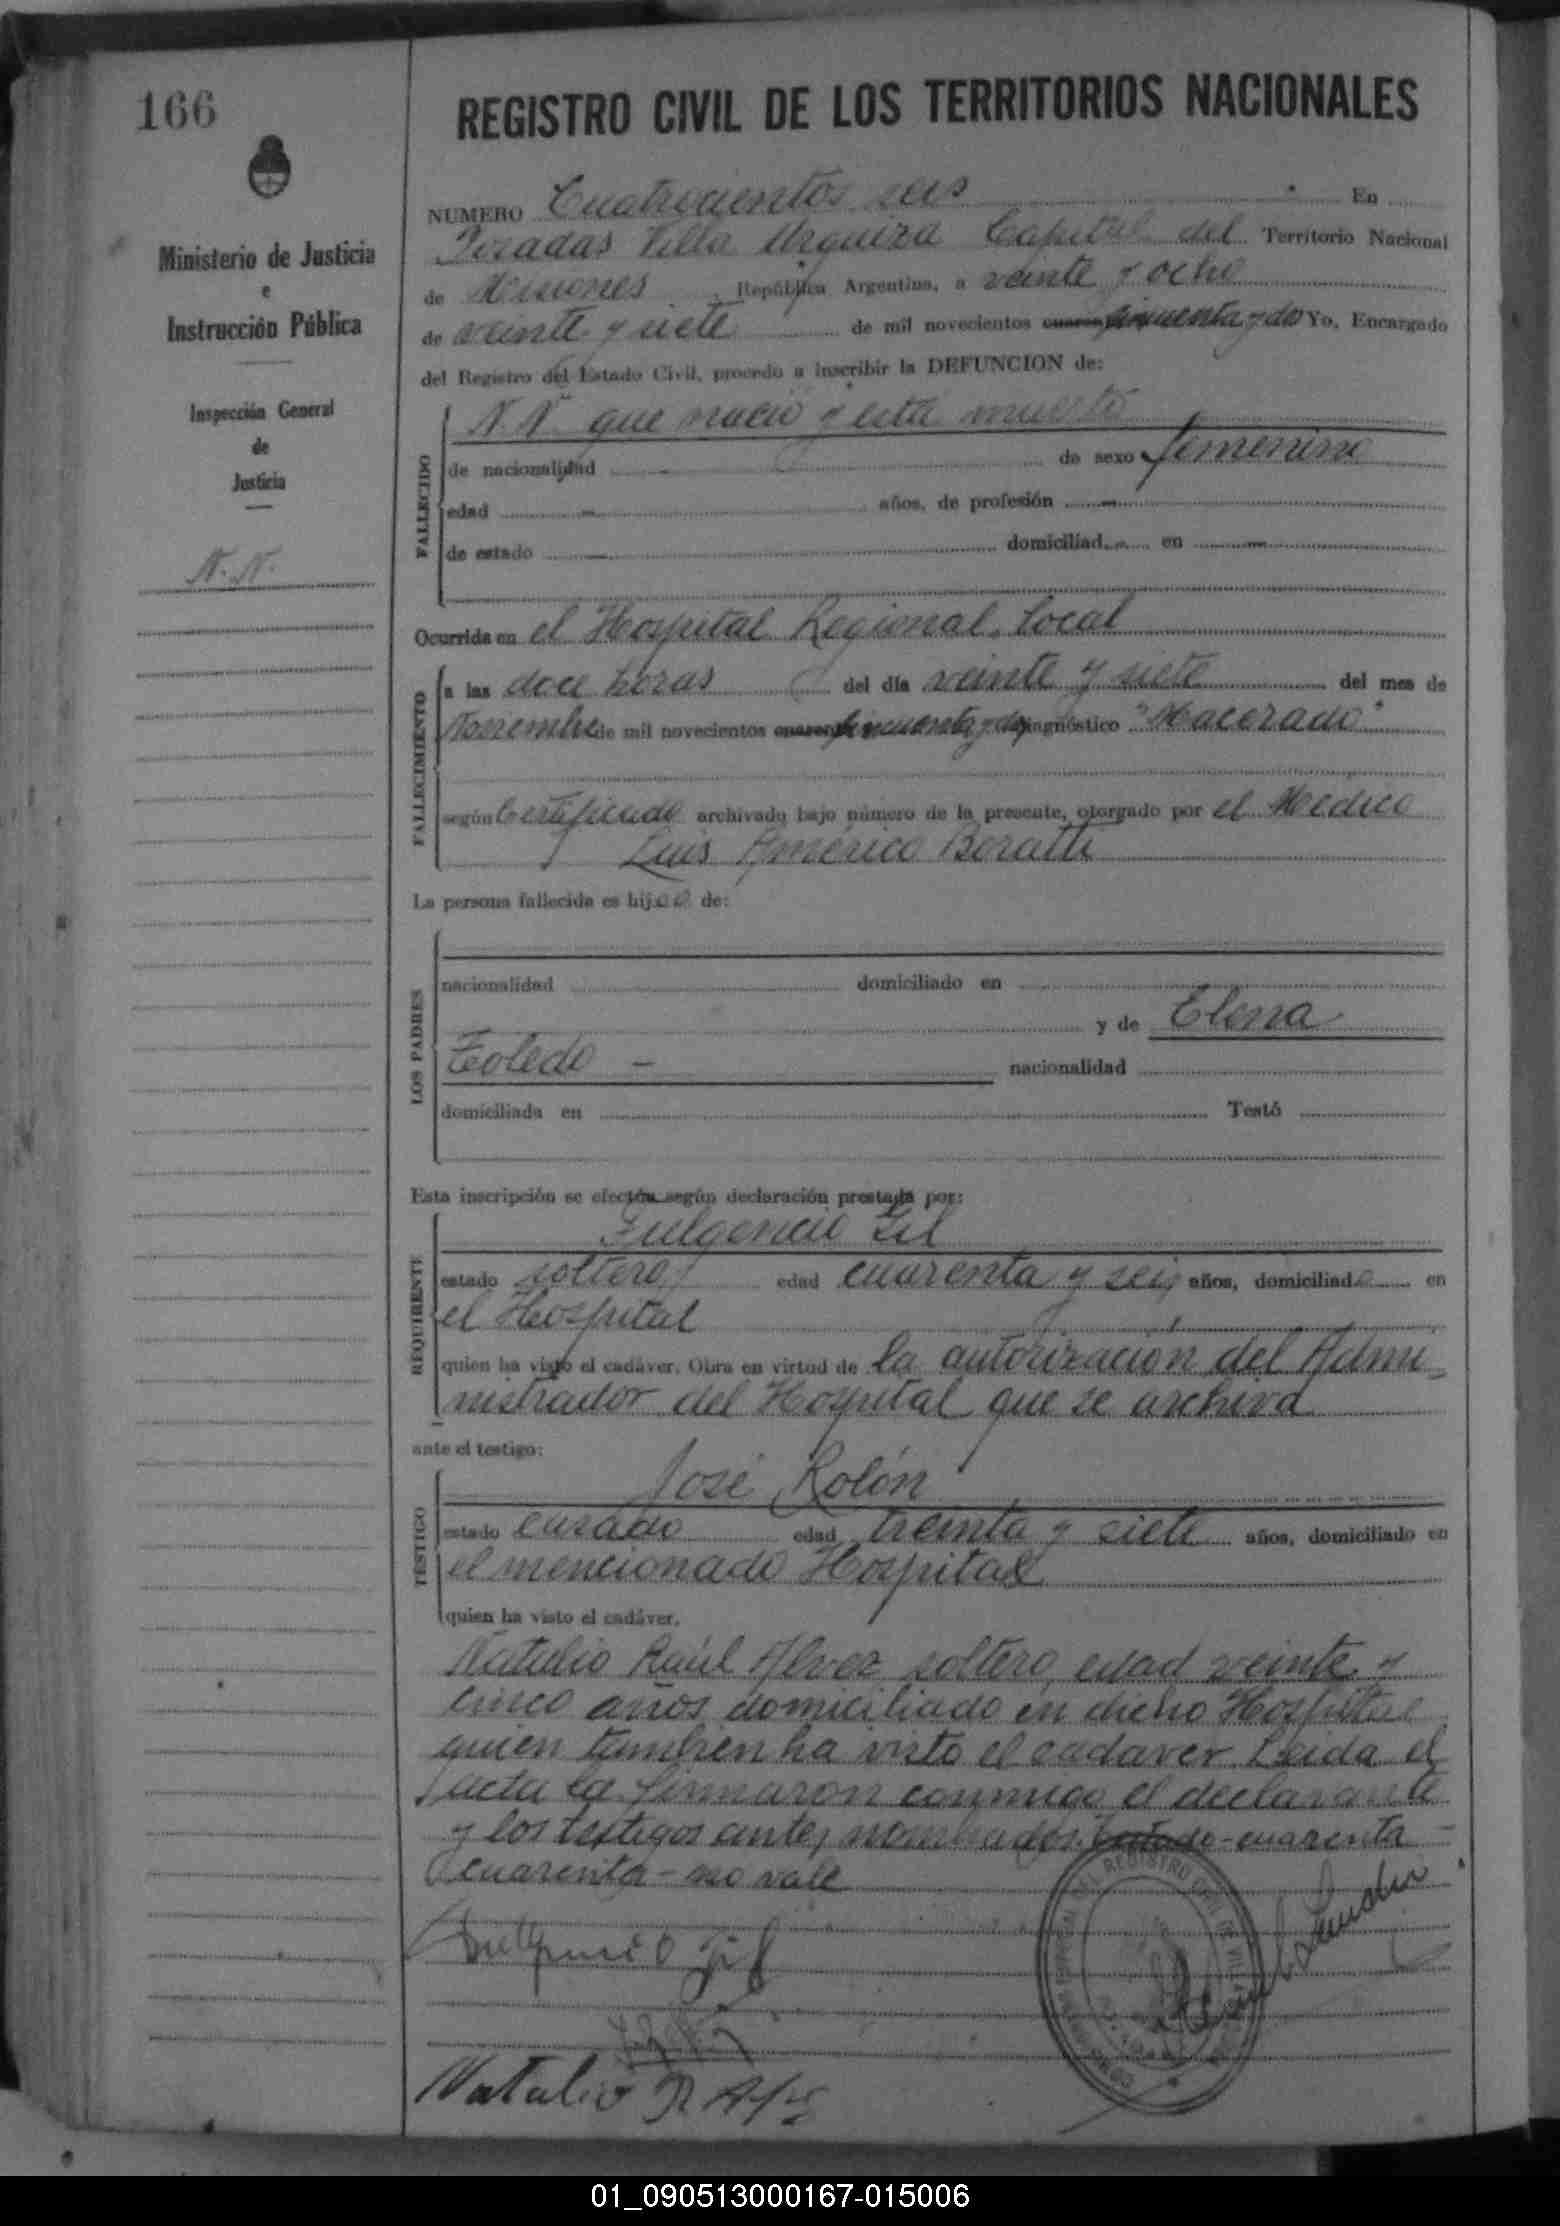 166
REGISTRO CIVIL DE LOS TERRITORIOS NACIONALES
Ministerio de Justicia
e
Instrucción Pública
Inspección General
de
Justicia
N. N.
NUMERO Cuatrocientos seis En
Posadas Villa Urquiza Capital del Territorio Nacional
de Misiones, República Argentina, a veinte y ocho
de veinte y siete de mil novecientos cincuenta y dos Yo, Encargado
del Registro del Estado Civil, procedo a inscribir la DEFUNCION de:
FALLECIDO
N. N. que nació y está muerto
de nacionalidad - de sexo femenino
edad - años, de profesión -
de estado - domiciliad - en -
Ocurrida en el Hospital Regional Local
FALLECIMIENTO
a las doce horas del día veinte y siete del mes de
Noviembre de mil novecientos cincuenta y dos diagnóstico "Macerado"
según Certificado archivado bajo número de la presente, otorgado por el Médico
Luis Américo Boratti
La persona fallecida es hija de:
LOS PADRES
nacionalidad domiciliado en
y de Elena
Toledo - nacionalidad
domiciliada en Testó
Esta inscripción se efectúa según declaración prestada por:
REQUIRENTE
Fulgencio Gil
estado soltero edad cuarenta y seis años, domiciliado en
el Hospital
quien ha visto el cadáver. Obra en virtud de la autorización del Admi-
nistrador del Hospital que se archiva
ante el testigo:
TESTIGO
José Rolón
estado casado edad treinta y siete años, domiciliado en
el mencionado Hospital
quien ha visto el cadáver.
Natalio Raúl Alvez soltero, edad veinte y
cinco años domiciliado en dicho Hospital
quien tambien ha visto el cadaver Leida el
acta la firmaron conmigo el declarante
y los testigos antes nombrados. Testado-cuarenta-
cuarenta-no vale
Fulgencio Gil
Natalio R Alvez
REGISTRO CIVIL DE VILLA
01_090513000167-015006